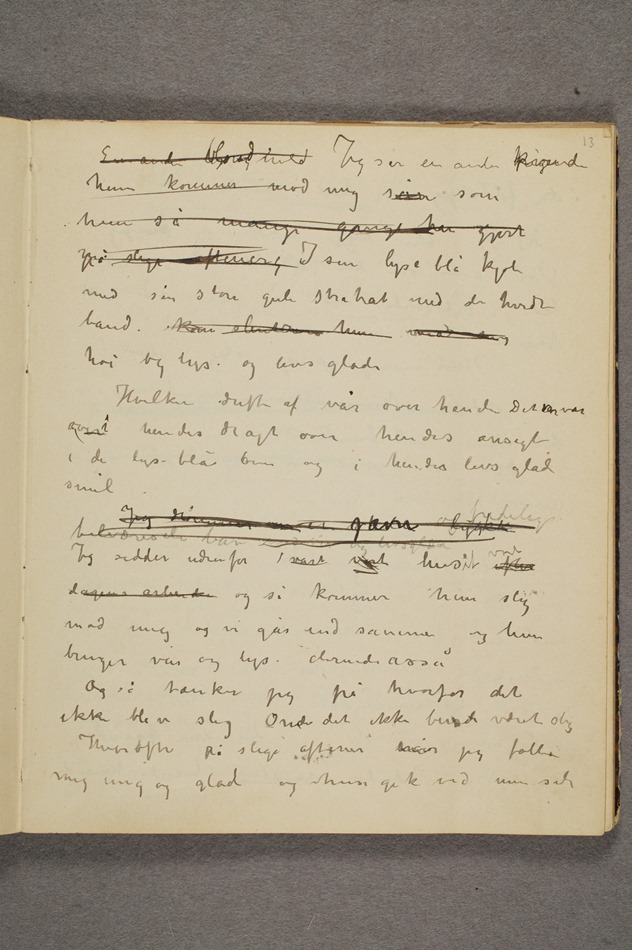 13
En anden blond hvid Jeg ser en anden
hun kommer mod mig som
hun så mange gange har gjort
på slige aftener, I sin lyse blå kjole
med sin store gule stråhat med de hvide
bånd. hun
høi og lys. og livs glade
Hvilken duft af vår over hende Det var
i hendes dragt over hendes ansigt
i de lys-blå øine og i hendes livs glad
smil
Jeg drømmer om en jævn og fredelig lykke
Jeg sidder udenfor vort huset
dagens arbeide og så kommer hun slig
mod mig og vi går ind sammen og hun
bringer vår og lys. derind også
Og så tænker jeg på hvorfor det
ikke ble v slig Onde det ikke være slig
Hvor ofte på slige aftener når jeg følte
mig ung og glad og hun gik ved min side